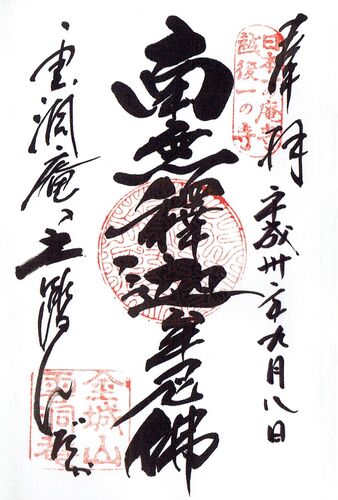 奉拝
日本一
庵寺
越後一の寺
平成 年九月八日
南無釋迦牟尼佛
雲洞庵
土踏んだか
金城山
雲洞庵